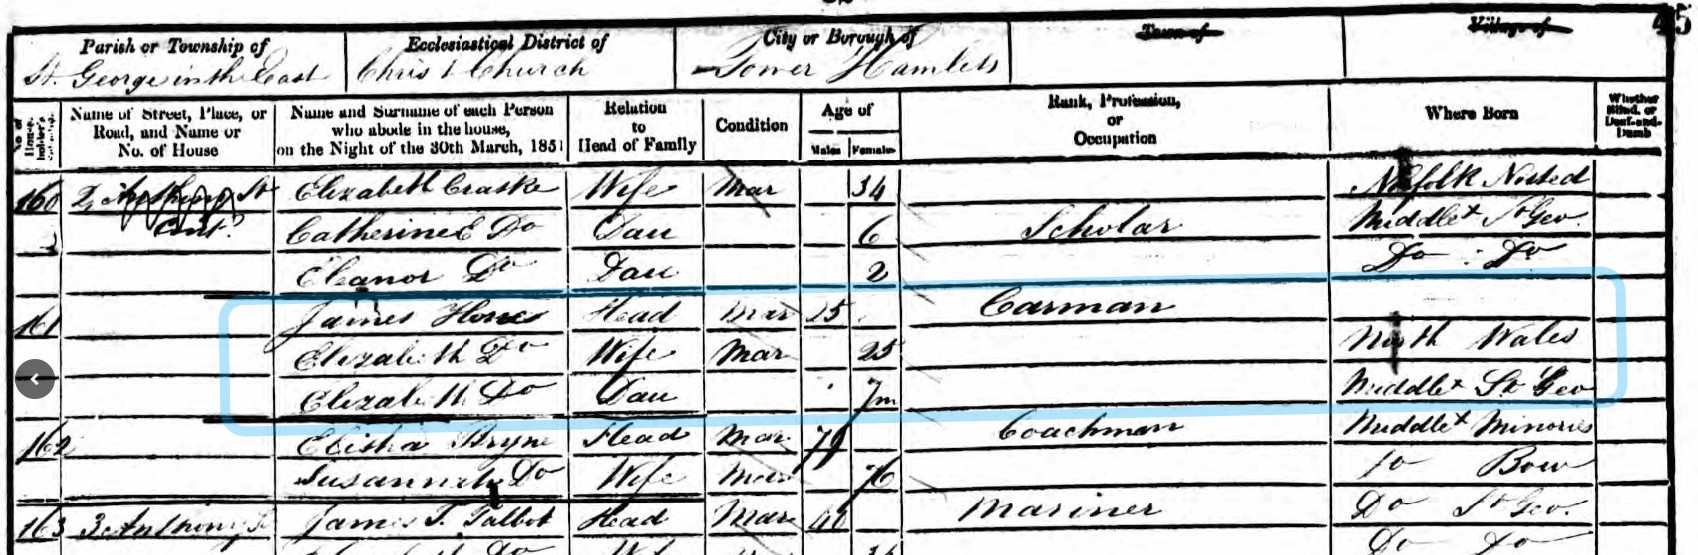 45
Parish or Township of Ecclesiastical District of City or Borough of Town of Village of
St. George in the East Christ Church Tower Hamlets
No. of House-holder's Schedule Name of Street, Place, or Road, and Name or No. of House Name and Surname of each Person who abode in the house, on the Night of the 30th March, 1851 Relation to Head of Family Condition Age of Males Females Rank, Profession, or Occupation Where Born Whether Blind, or Deaf-and-Dumb
160 2, St Elizabeth Craske Wife Mar 34 Norfolk
Cont. Catherine E Do Dau 6 Scholar Middlex St Geo.
Eleanor Do Dau 2 Do Do
161 James Head Mar Carman
Elizabeth Do Wife Mar 25 North Wales
Elizabeth Do Dau 7m Middlex St Geo
162 Elisha Head Mar 79 Coachman Middlex Minories
Susannah Do Wife Mar 76 Do Bow
163 3 Anthony St James T. Talbot Head Mar 40 Mariner Do St Geo.
Do Do Do